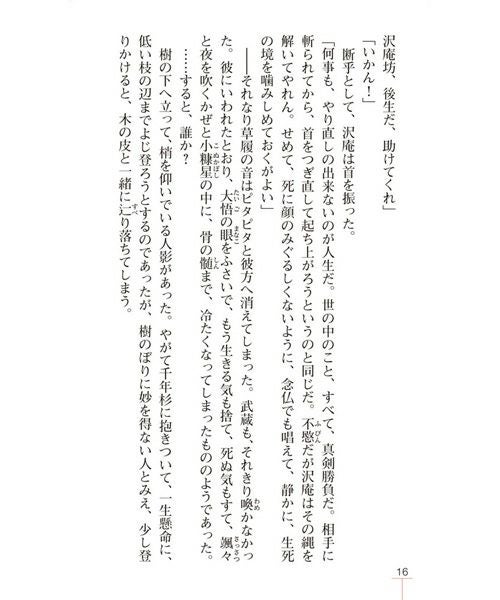 沢庵坊、後生だ、助けてくれ」
「いかん！」
断乎として、沢庵は首を振った。
「何事も、やり直しの出来ないのが人生だ。世の中のこと、すべて、真剣勝負だ。相手に
斬られてから、首をつぎ直して起ち上がろうというのと同じだ。不愍だが沢庵はその縄を
解いてやれん。せめて、死に顔のみぐるしくないように、念仏でも唱えて、静かに、生死
の境を噛みしめておくがよい」
――それなり草履の音はピタピタと彼方へ消えてしまった。武蔵も、それきり喚かなかっ
た。彼にいわれたとおり、大悟の眼をふさいで、もう生きる気も捨て、死ぬ気もすて、颯々
と夜を吹くかぜと小糠星の中に、骨の髄まで、冷たくなってしまったもののようであった。
……すると、誰か？
樹の下へ立って、梢を仰いでいる人影があった。やがて千年杉に抱きついて、一生懸命に、
低い枝の辺までよじ登ろうとするのであったが、樹のぼりに妙を得ない人とみえ、少し登
りかけると、木の皮と一緒に辷り落ちてしまう。
16